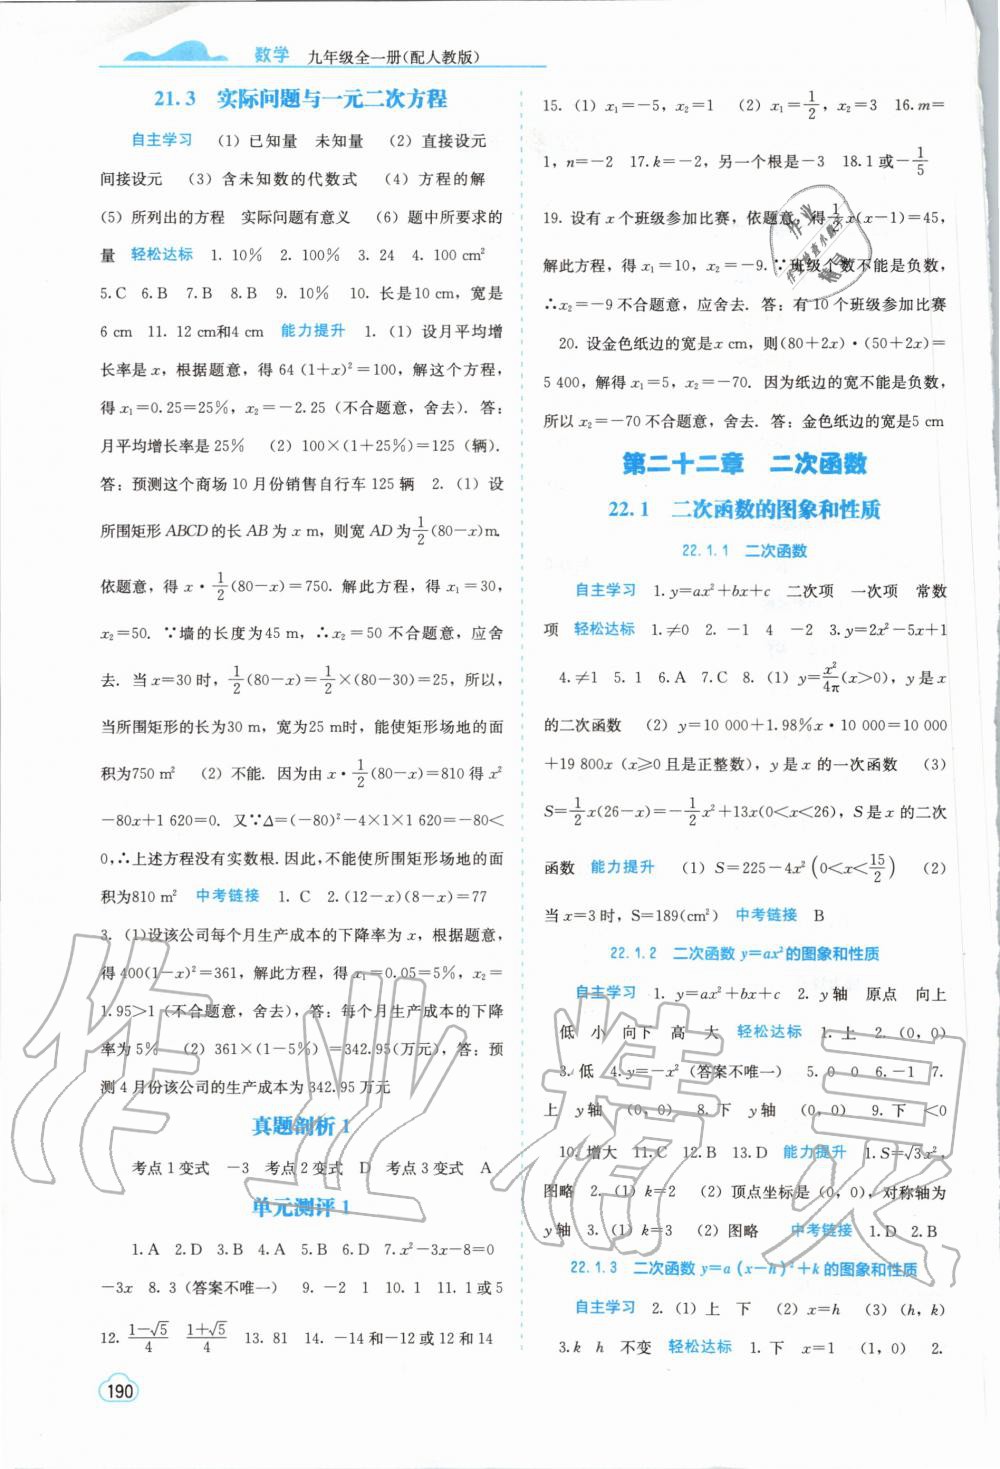 数学 九年级全一册(配人教版)
21.3 实际问题与一元二次方程
自主学习 (1) 已知量 未知量 (2) 直接设元
间接设元 (3) 含未知数的代数式 (4) 方程的解
(5) 所列出的方程 实际问题有意义 (6) 题中所要求的
量 轻松达标 1. 10% 2. 100% 3. 24 4. 100 cm²
5. C 6. B 7. B 8. B 9. 10% 10. 长是10 cm,宽是
6 cm 11. 12 cm和4 cm 能力提升 1. (1) 设月平均增
长率是 x,根据题意,得 64 (1+x)²=100,解这个方程,
得 x₁=0.25=25%,x₂=-2.25 (不合题意,舍去). 答:
月平均增长率是 25% (2) 100×(1+25%)=125 (辆).
答:预测这个商场 10 月份销售自行车 125 辆 2. (1) 设
所围矩形 ABCD 的长 AB 为 x m,则宽 AD 为 1/2(80-x)m.
依题意,得 x·1/2(80-x)=750. 解此方程,得 x₁=30,
x₂=50. ∵墙的长度为45 m,∴x₂=50 不合题意,应舍
去. 当 x=30 时,1/2(80-x)=1/2×(80-30)=25,所以,
当所围矩形的长为30 m,宽为25 m时,能使矩形场地的面
积为750 m² (2) 不能. 因为由 x·1/2(80-x)=810 得 x²
-80x+1 620=0. 又∵Δ=(-80)²-4×1×1 620=-80<
0,∴上述方程没有实数根. 因此,不能使所围矩形场地的面
积为810 m² 中考链接 1. C 2. (12-x)(8-x)=77
3. (1)设该公司每个月生产成本的下降率为 x,根据题意,
得 400(1-x)²=361,解此方程,得 x₁=0.05=5%,x₂=
1.95>1 (不合题意,舍去),答:每个月生产成本的下降
率为 5% (2) 361×(1-5%)=342.95(万元),答:预
测 4 月份该公司的生产成本为 342.95 万元
真题剖析 1
考点 1 变式 -3 考点 2 变式 D 考点 3 变式 A
单元测评 1
1. A 2. D 3. B 4. A 5. B 6. D 7. x²-3x-8=0
-3x 8. 3 (答案不唯一) 9. -2 1 10. 1 11. 1 或 5
12. (1-√5)/4 (1+√5)/4 13. 81 14. -14 和-12 或 12 和 14
190
15. (1) x₁=-5,x₂=1 (2) x₁=1/2,x₂=3 16. m=
1,n=-2 17. k=-2,另一个根是-3 18. 1 或-1/5
19. 设有 x 个班级参加比赛,依题意,得 1/2 x(x-1)=45,
解此方程,得 x₁=10,x₂=-9. ∵班级个数不能是负数,
∴x₂=-9 不合题意,应舍去. 答:有 10 个班级参加比赛
20. 设金色纸边的宽是x cm,则(80+2x)·(50+2x)=
5 400,解得 x₁=5,x₂=-70. 因为纸边的宽不能是负数,
所以 x₂=-70 不合题意,舍去. 答:金色纸边的宽是5 cm
第二十二章 二次函数
22.1 二次函数的图象和性质
22.1.1 二次函数
自主学习 1. y=ax²+bx+c 二次项 一次项 常数
项 轻松达标 1. ≠0 2. -1 4 -2 3. y=2x²-5x+1
4. ≠1 5. 1 6. A 7. C 8. (1) y=x²/4π(x>0),y 是 x
的二次函数 (2) y=10 000+1.98%x·10 000=10 000
+19 800x (x≥0 且是正整数),y 是 x 的一次函数 (3)
S=1/2x(26-x)=-1/2x²+13x(0<x<26),S 是 x 的二次
函数 能力提升 (1) S=225-4x²(0<x<15/2) (2)
当 x=3 时,S=189(cm²) 中考链接 B
22.1.2 二次函数 y=ax²的图象和性质
自主学习 1. y=ax²+bx+c 2. y 轴 原点 向上
低 小 向下 高 大 轻松达标 1. 上 2. (0,0)
3. 低 4. y=-x² (答案不唯一) 5. 0 0 6. -1 7.
上 y 轴 (0,0) 8. 下 y 轴 (0,0) 9. 下 <0
10. 增大 11. C 12. B 13. D 能力提升 1. S=√3x²,
图略 2. (1) k=2 (2) 顶点坐标是 (0,0),对称轴为
y 轴 3. (1) k=3 (2) 图略 中考链接 1. D 2. B
22.1.3 二次函数 y=a (x-h)²+k 的图象和性质
自主学习 2. (1) 上 下 (2) x=h (3) (h,k)
3. k h 不变 轻松达标 1. 下 x=1 (1,0) 2.
作业精灵